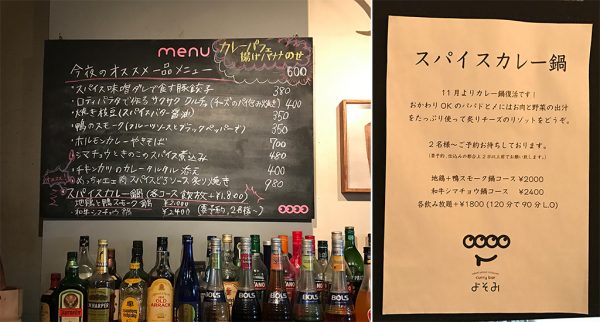 menu
カレーパフェ
揚げバナナのせ
600
今夜のオススメ一品メニュー
・スパイス味噌ダレで食す豚餃子 380
・ロティパラタで作るサクサク クルチャ(チーズのパイ包み焼き) 400
・焼き枝豆(スパイスバター醤油) 350
・鴨のスモーク(フルーツソースとブラックペッパーオ) 350
・ホルモンカレーやきそば 700
・シマチョウときのこのスパイス煮込み 480
・チキンカツのカレータルタル添え 400
スパイスどろソース炙り焼き 980
スパイスカレー鍋(各コース飲放+¥1,800)
地鶏と鴨スモーク鍋 ¥2,000
・和牛シマチョウ鍋 ¥2400 (要予約,2名様〜)
JÄGERMEISTER
HARPER
OLD
ARRACK
BOLS
BOLS
BOLS
BOLS
スパイスカレー鍋
11月よりカレー鍋復活です！
おかわりOKのパパドと〆にはお肉と野菜の出汁
をたっぷり使って炙りチーズのリゾットをどうぞ。
2名様〜ご予約お待ちしております。
地鶏+鴨スモーク鍋コース ¥2000
和牛シマチョウ鍋コース ¥2400
各飲み放題+¥1800(120分で90分L.O)
curry bar
よそみ